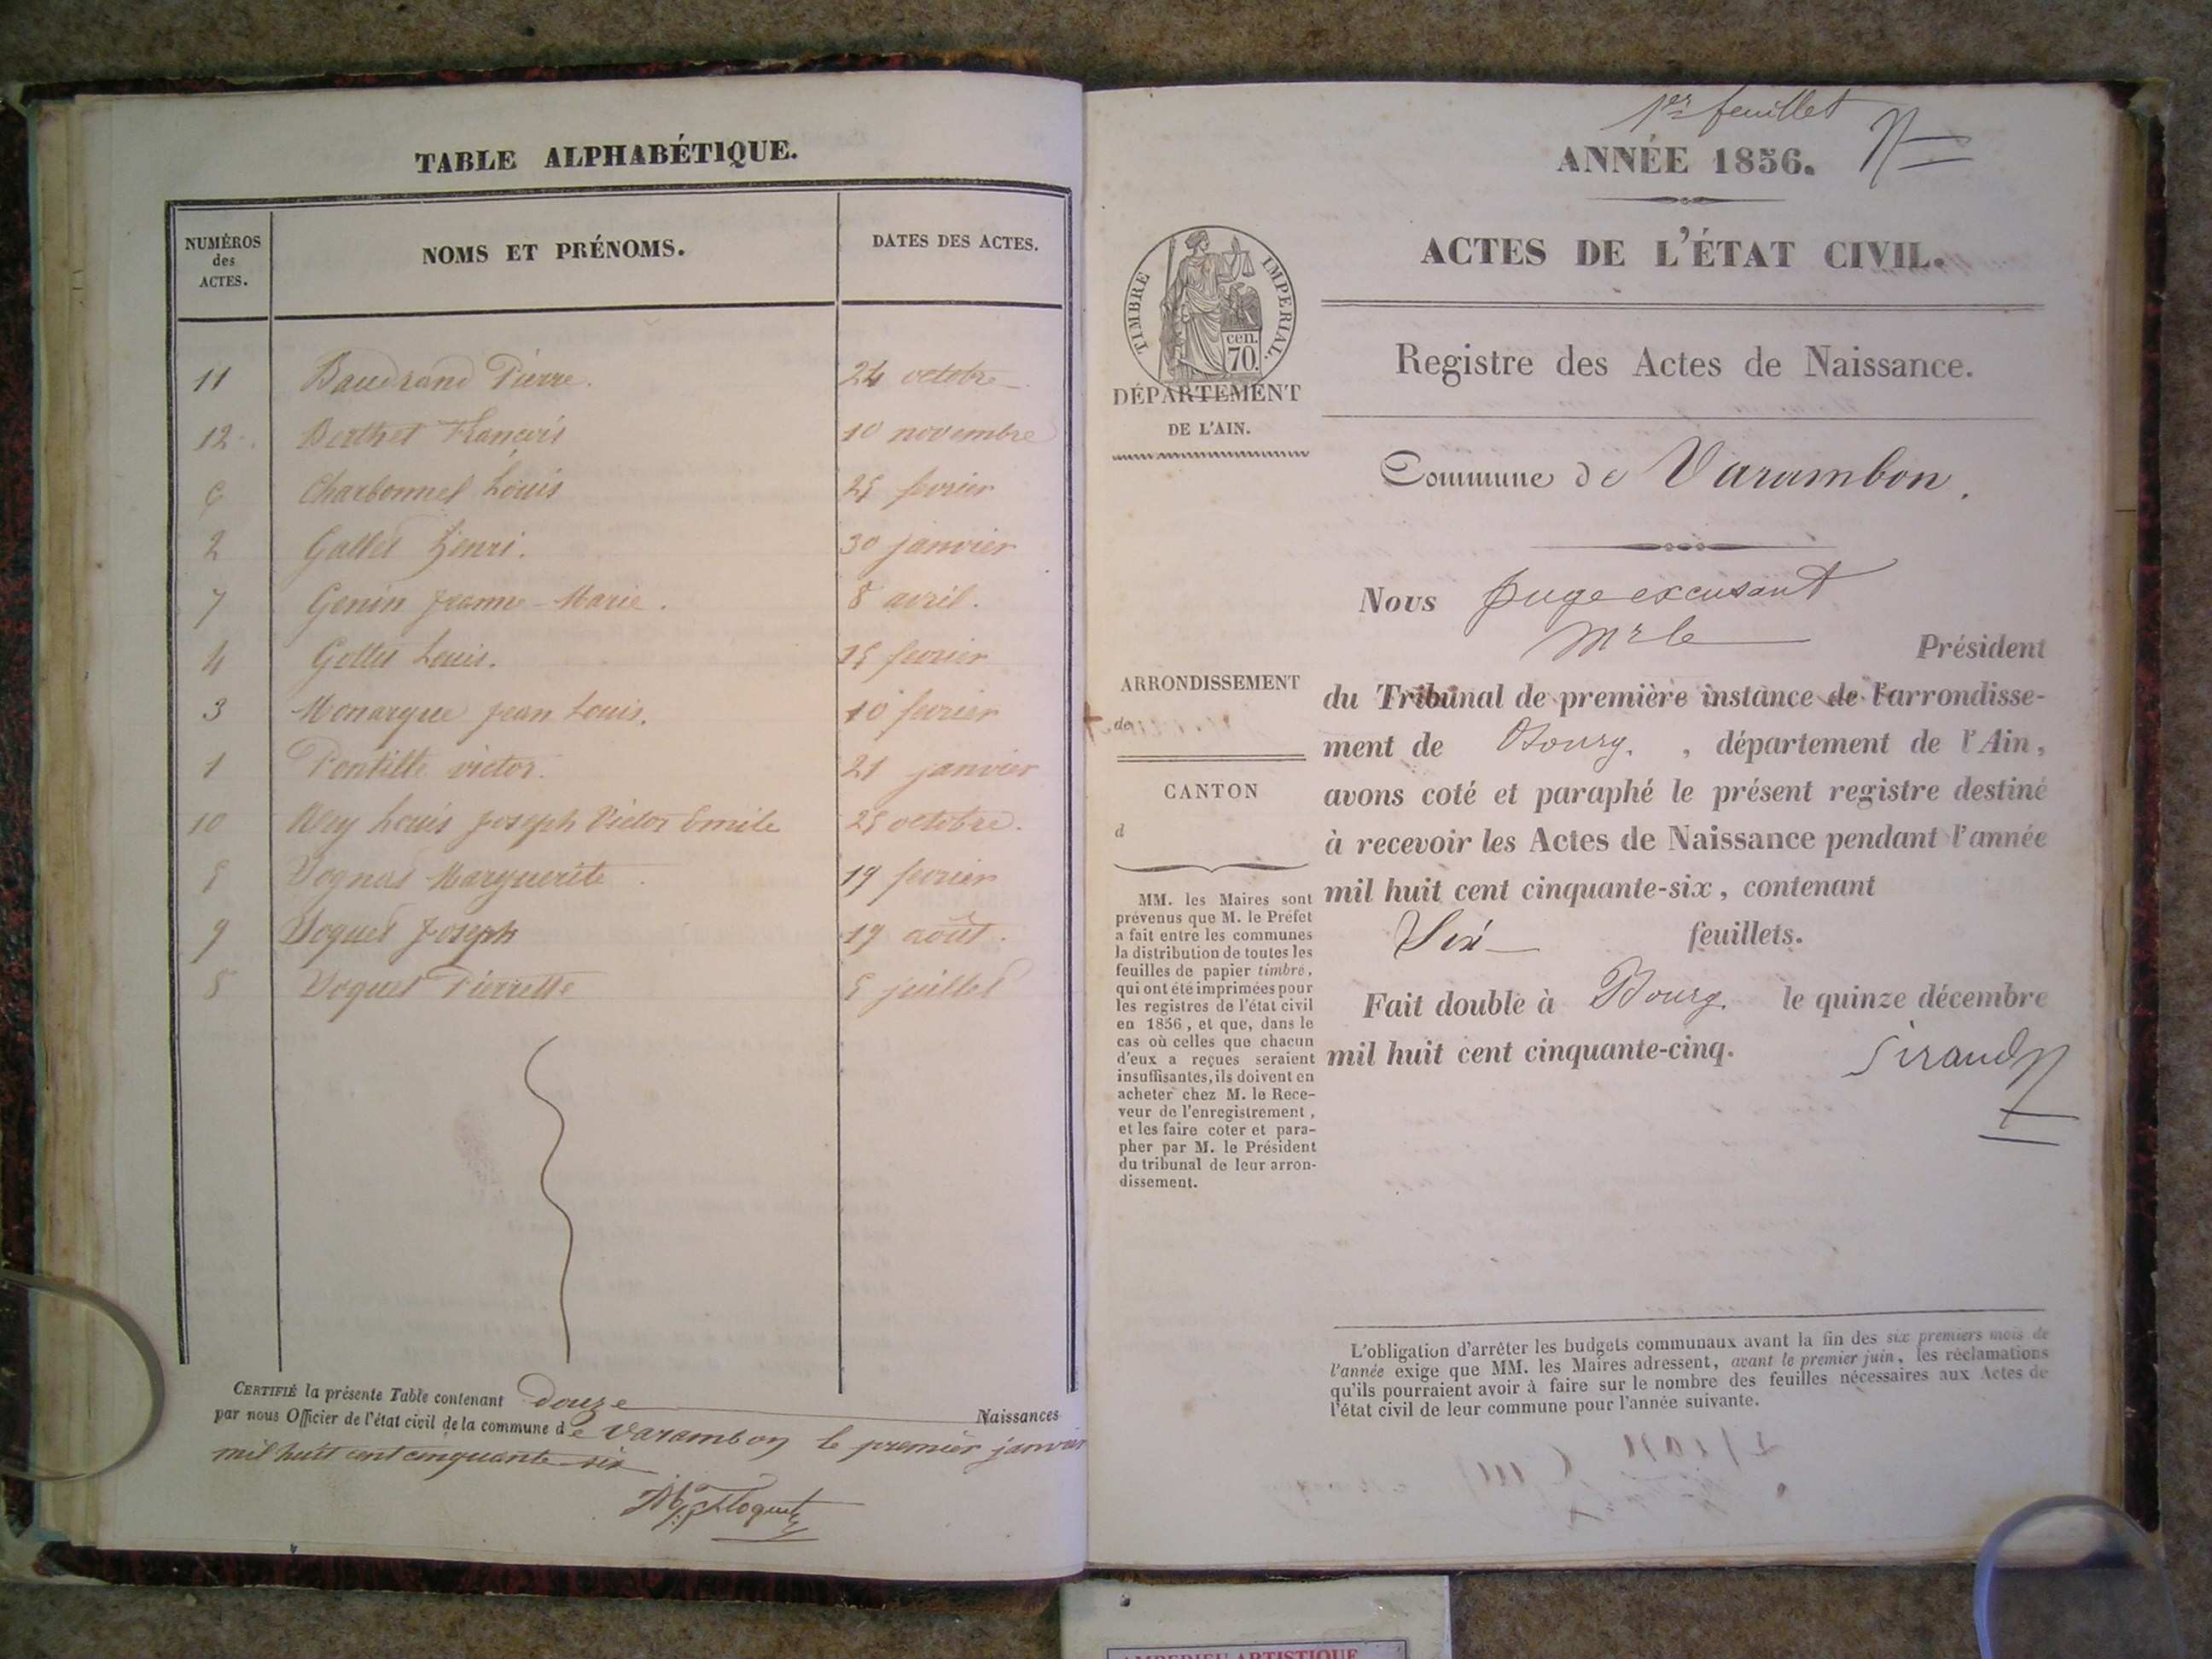 TABLE ALPHABÉTIQUE.
NUMÉROS des ACTES.
NOMS ET PRÉNOMS.
DATES DES ACTES.
11 Baudrand Pierre. 24 octobre
12 Berthet François 10 novembre
6 Charbonnel Louis 25 fevrier
2 Gallet henri. 30 janvier
7 Genin Jeanne-Marie. 8 avril.
4 Gollet Louis. 15 fevrier
3 Monarque jean Louis. 10 fevrier
1 Pontille victor. 21 janvier
10 Louis joseph Victor Emile 25 octobre.
5 Marguerite 19 fevrier
9 Voquet Joseph 19 août.
8 Voquet Pierrette 5 juillet
CERTIFIÉ la présente Table contenant douze Naissances
par nous Officier de l'état civil de la commune de Varambon le premier janvier
mil huit cent cinquante six
1er feuillet
ANNÉE 1856.
ACTES DE L'ÉTAT CIVIL.
TIMBRE IMPERIAL.
cen.
70.
Registre des Actes de Naissance.
DÉPARTEMENT
DE L'AIN.
Commune de Varambon.
Nous Juge excusant
Mr le Président
ARRONDISSEMENT
de
CANTON
d
du Tribunal de première instance de l'arrondisse-
ment de Bourg, département de l'Ain,
avons coté et paraphé le présent registre destiné
à recevoir les Actes de Naissance pendant l'année
mil huit cent cinquante-six, contenant
Six feuillets.
Fait double à Bourg le quinze décembre
mil huit cent cinquante-cinq.
Siraud
MM. les Maires sont
prévenus que M. le Préfet
a fait entre les communes
la distribution de toutes les
feuilles de papier timbré,
qui ont été imprimées pour
les registres de l'état civil
en 1856, et que, dans le
cas où celles que chacun
d'eux a reçues seraient
insuffisantes, ils doivent en
acheter chez M. le Rece-
veur de l'enregistrement,
et les faire coter et para-
pher par M. le Président
du tribunal de leur arron-
dissement.
L'obligation d'arrêter les budgets communaux avant la fin des six premiers mois de
l'année exige que MM. les Maires adressent, avant le premier juin, les réclamations
qu'ils pourraient avoir à faire sur le nombre des feuilles nécessaires aux Actes de
l'état civil de leur commune pour l'année suivante.